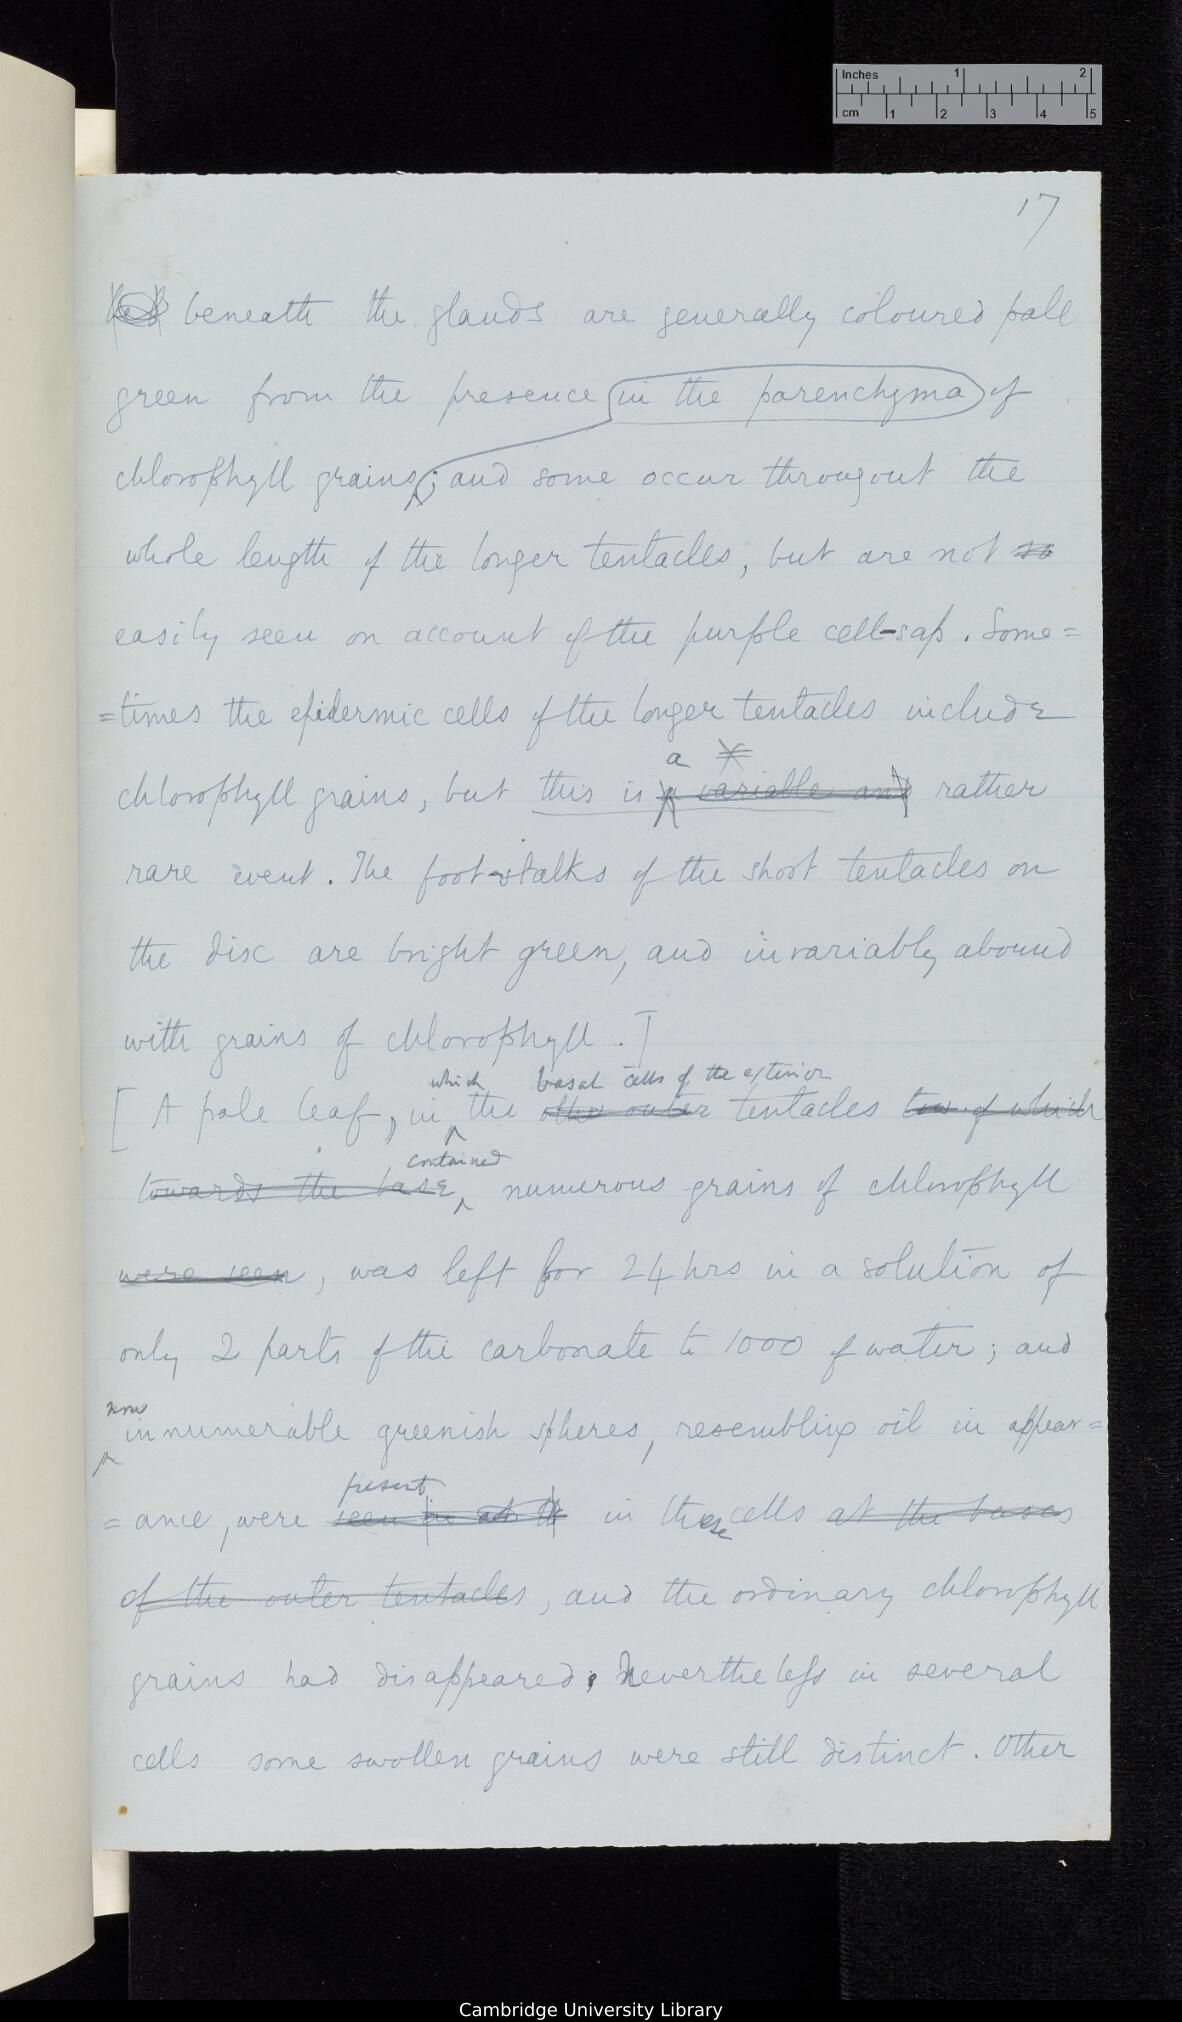 Inches 1 2
cm 1 2 3 4 5
17
beneath the glands are generally coloured pale
green from the presence in the parenchyma of
chlorophyll grains; and some occur througout the
whole length of the longer tentacles, but are not so
easily seen on account of the purple cell-sap. Some=
=times the epidermic cells of the longer tentacles include
a
chlorophyll grains, but this is a variable and rather
rare event. The foot-stalks of the short tentacles on
the disc are bright green, and invariably abound
with grains of chlorophyll.]
which basal cells of the exterior
[A pale leaf, in the outer tentacles of which
contained
towards the base, numerous grains of chlorophyll
were seen, was left for 24 hrs in a solution of
only 2 parts of the carbonate to 1000 of water; and
now
innumerable greenish spheres, resembling oil in appear=
present
=ance, were seen in at th in these cells at the bases
of the outer tentacles, and the ordinary chlorophyll
grains had disappeared; Nevertheless in several
cells some swollen grains were still distinct. Other
Cambridge University Library